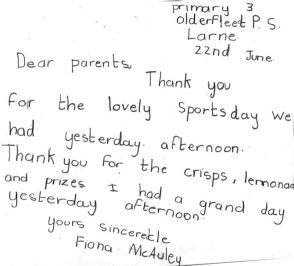 primary 3
olderfleet P.S.
Larne
22nd June
Dear parents,
Thank you
for the lovely Sports day we
had yesterday afternoon.
Thank you for the crisps, lemonad
and prizes I had a grand day
yesterday afternoon.
yours sincerecle
Fiona McAuley